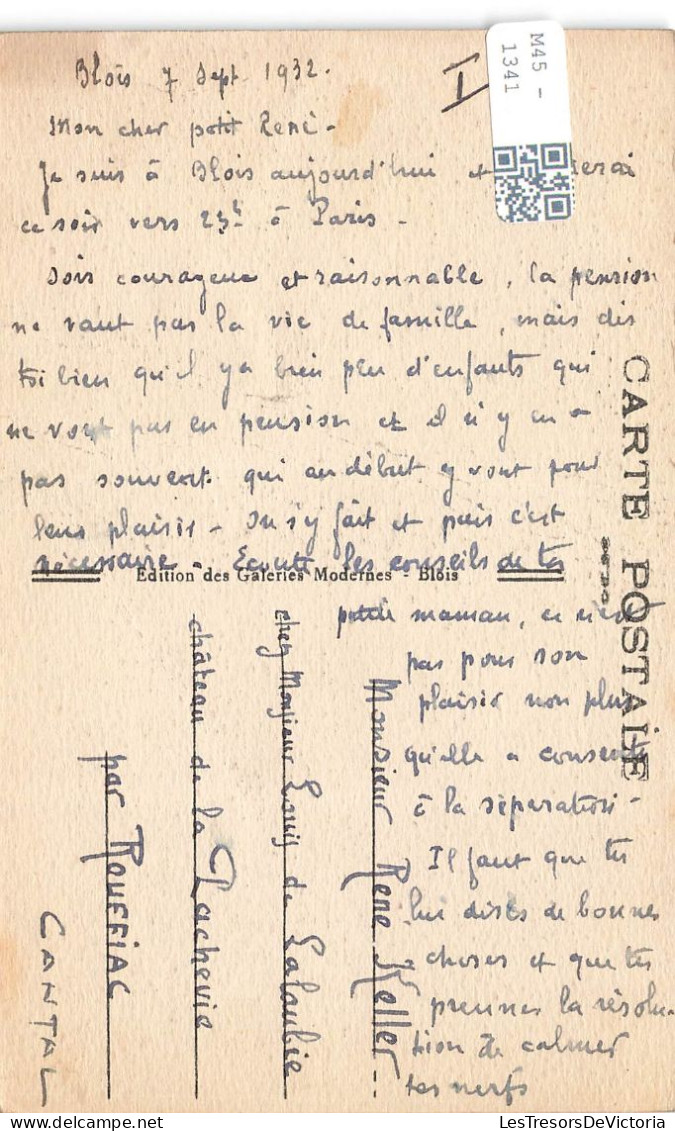 M45 -
1341
Blois 7 Sept 1932.
I
Mon cher petit René -
Je suis à Blois aujourd'hui et
ce soir vers 23h à Paris -
Sois courageux et raisonnable, la pension
ne vaut pas la vie de famille, mais dis
toi bien qu'il y a bien peu d'enfants qui
ne vont pas en pension et il n'y en a
pas souvent qui au début y vont pour
leur plaisir - On s'y fait et puis c'est
nécessaire - Ecoute les conseils de ta
petite maman, ce n'est
pas pour son
plaisir non plus
qu'elle a consenti
à la séparation -
Il faut que tu
lui dises de bonnes
choses et que tu
prennes la résolu-
tion de calmer
tes nerfs
CARTE POSTALE
Edition des Galeries Modernes - Blois
Monsieur René Keller
chez Monsieur Louis de Laloubie
château de la
par ROUFFIAC
CANTAL
LesTresorsDeVictoria